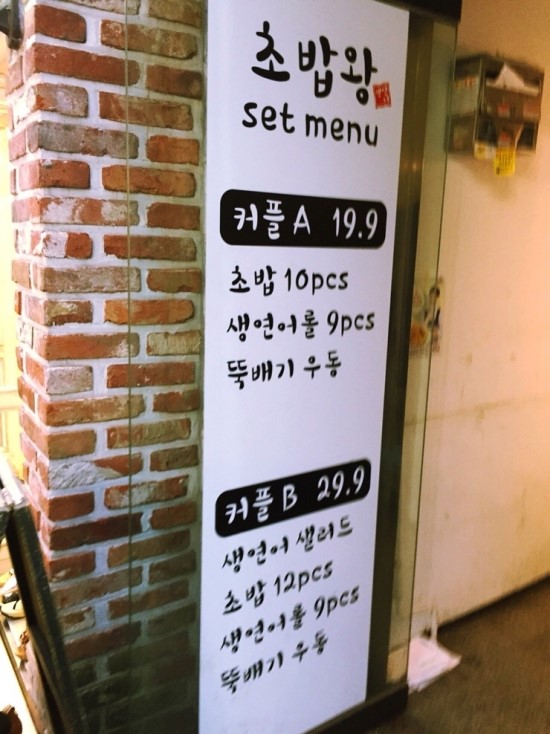 초밥왕
set menu
커플 A 19.9
초밥 10pcs
생연어롤 9pcs
뚝배기 우동
커플 B 29.9
생연어 샐러드
초밥 12pcs
생연어롤 9pcs
뚝배기 우동